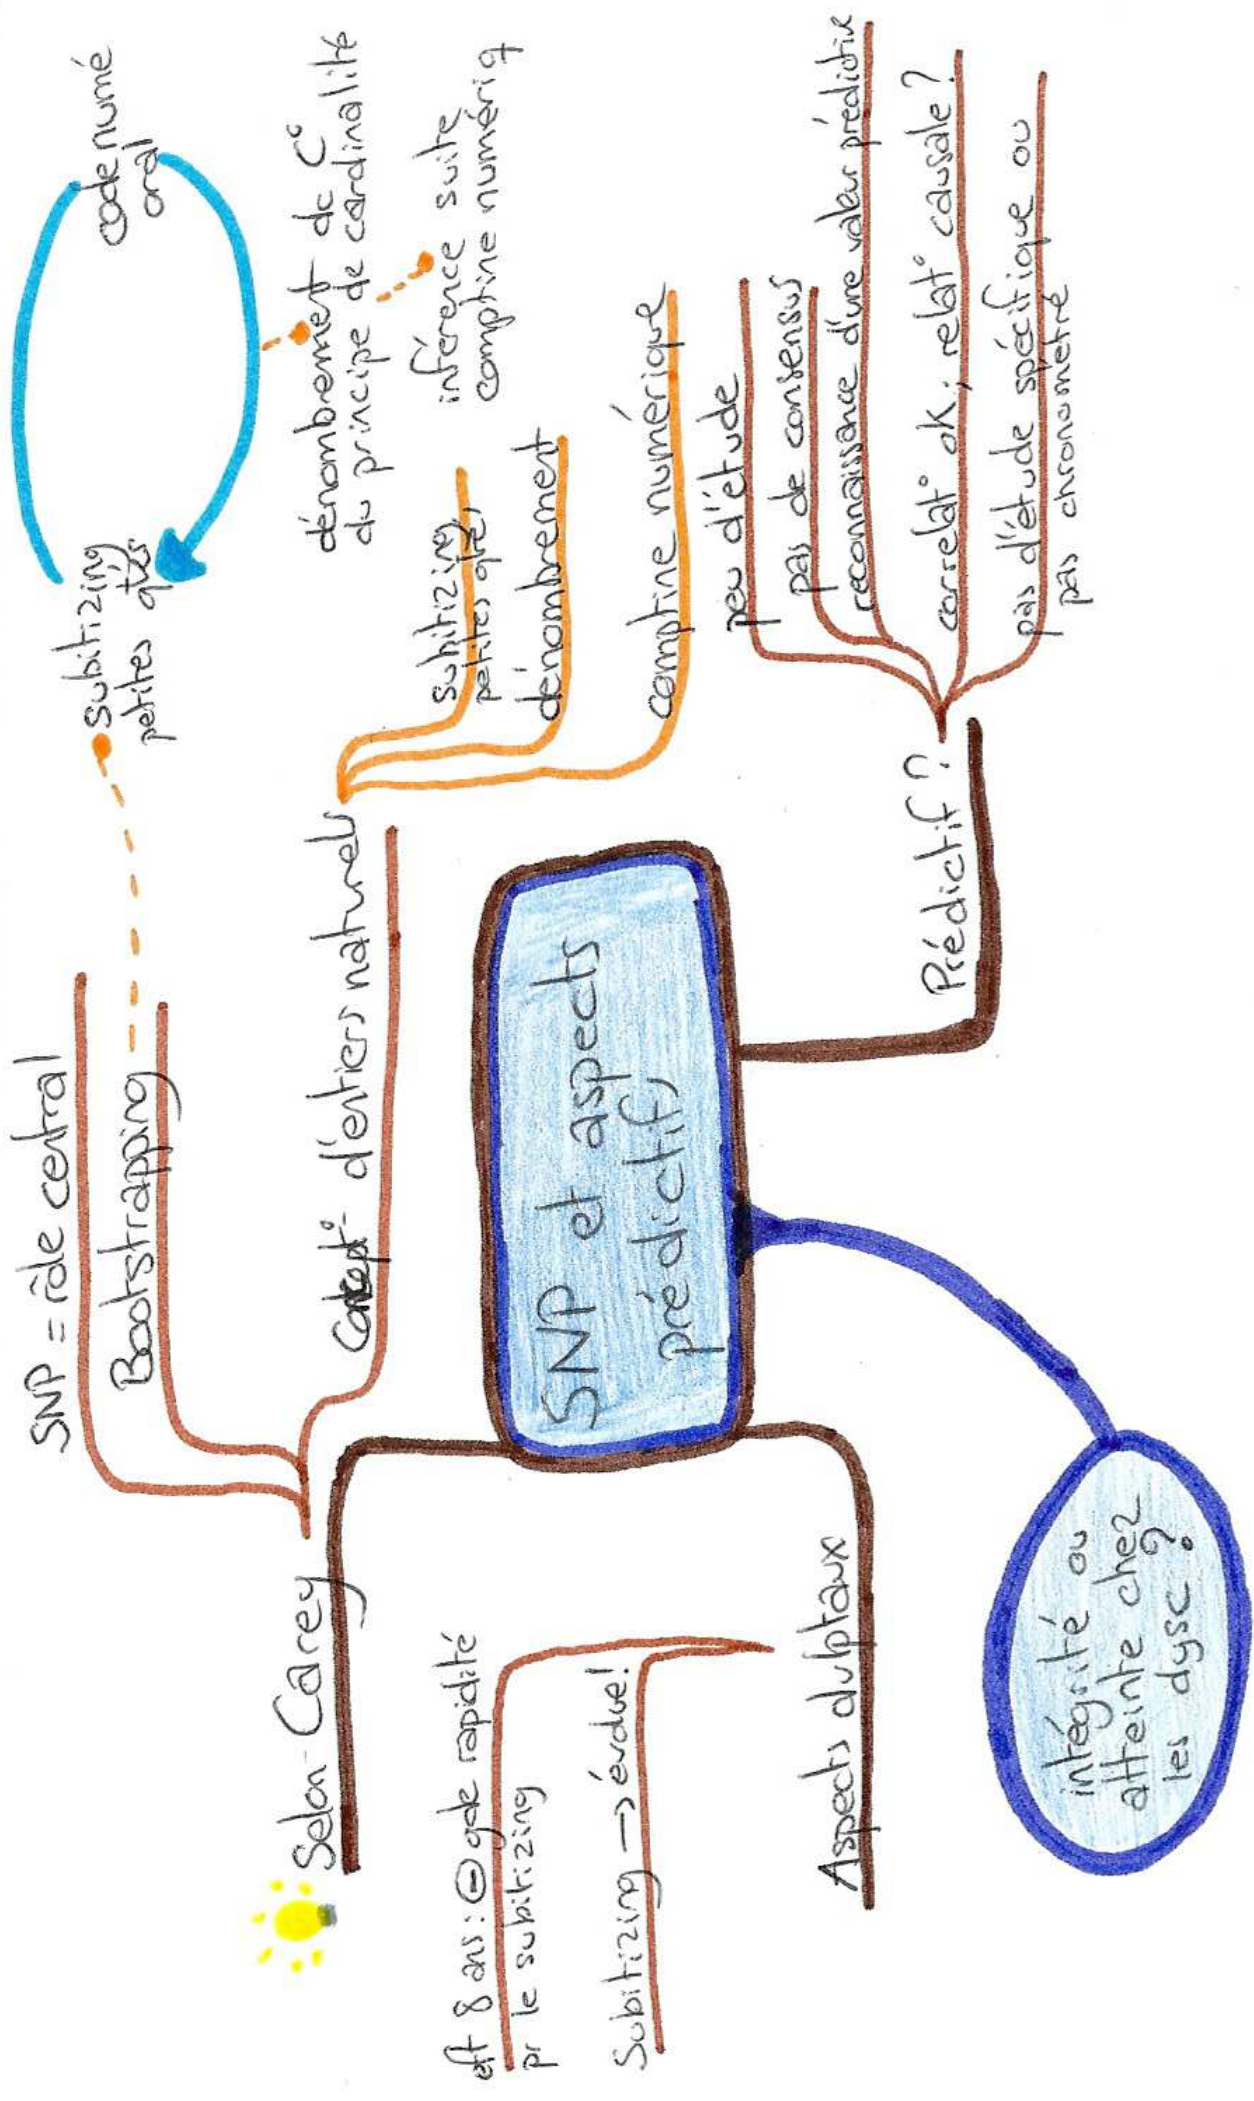 SNP et aspects
prédictifs
Selon Carey
SNP = rôle central
Bootstrapping
subitizing
petites qtés
code numé
oral
dénombremet de C°
du principe de cardinalité
inférence suite
comptine numériq
Concept° d'entiers naturels
subitizing
petites qtés
dénombrement
comptine numérique
Prédictif ?
peu d'étude
pas de consensus
reconnaissance d'une valeur prédictive
correlat° ok ; relat° causale ?
pas d'étude spécifique ou
pas chronométré
Aspects dvlptaux
eft 8 ans : ⊖ gde rapidité
pr le subitizing
Subitizing → évolue !
intégrité ou
atteinte chez
les dysc ?